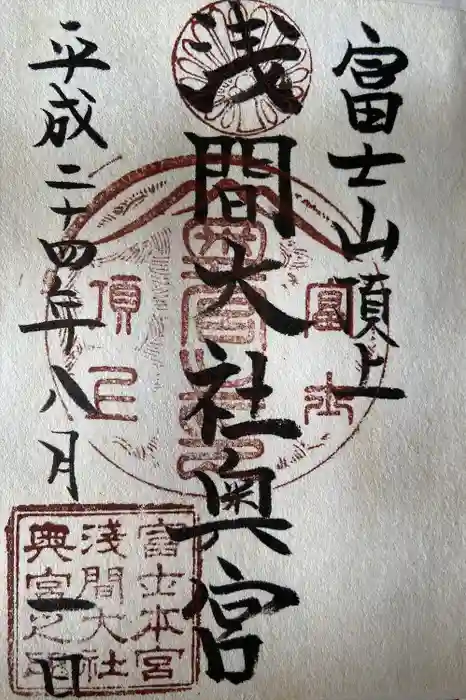 富士山頂上
浅間大社奥宮
平成二十四年八月一日
富士
頂上
富士本宮
浅間大社
奥宮之印